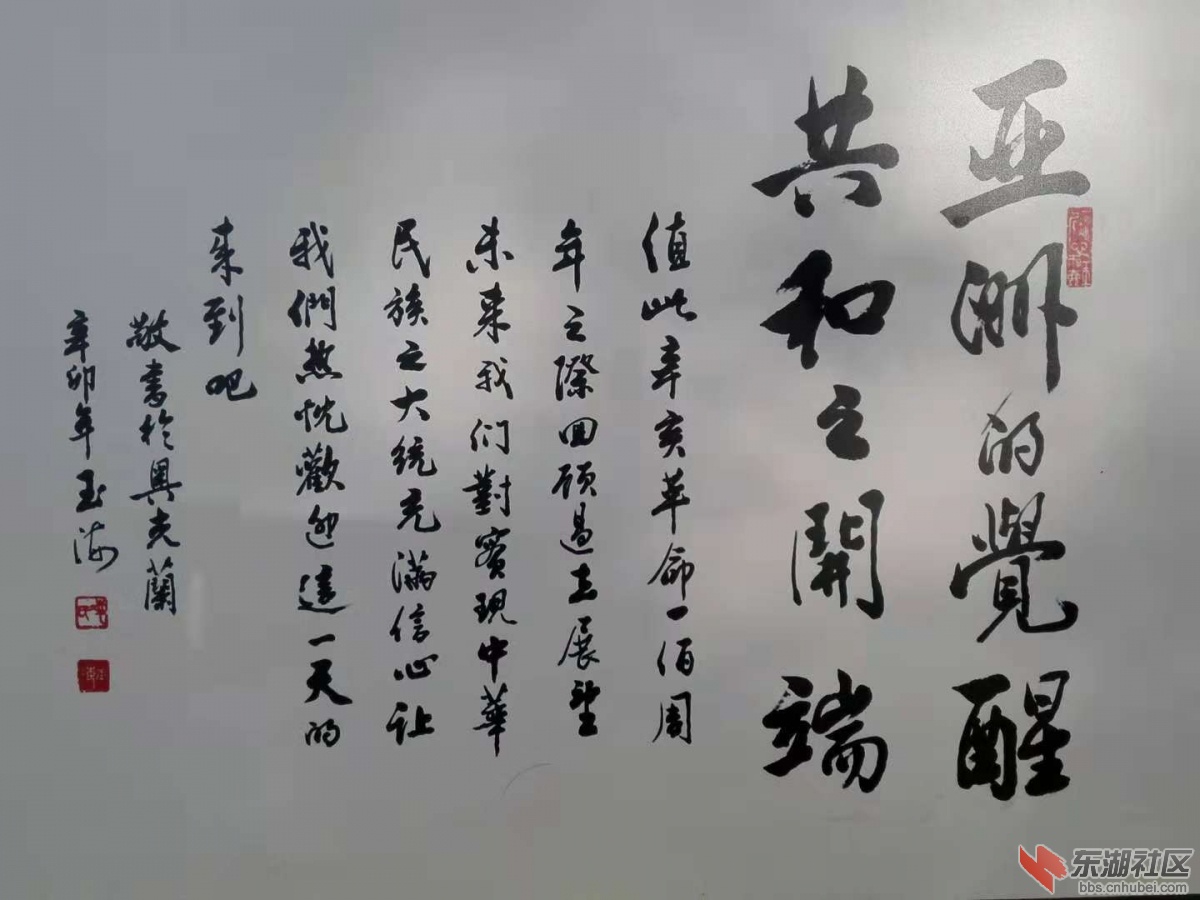 亚洲的覺醒
共和之開端
值此辛亥革命一佰周
年之際回顾過去展望
未来我们對實現中華
民族之大统充满信心让
我們熱忱歡迎這一天的
来到吧
敬書於奥克蘭
辛卯年玉海
东湖社区
bbs.cnhubei.com